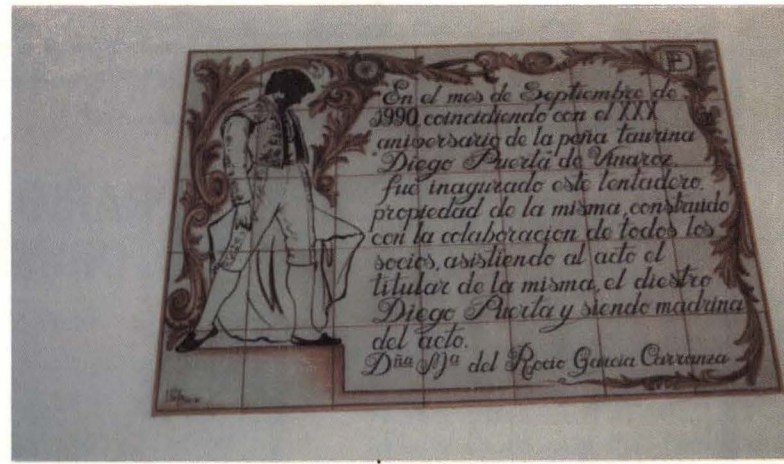 En el mes de Septiembre de
1990, coincidiendo con el XXX
aniversario de la peña taurina
"Diego Puerta" de Vinaroz,
fue inagurado este tentadero,
propiedad de la misma, construido
con la colaboracion de todos los
socios, asistiendo al acto el
titular de la misma, el diestro
Diego Puerta y siendo madrina
del acto.
Dña Mª del Rocio Garcia Carranza